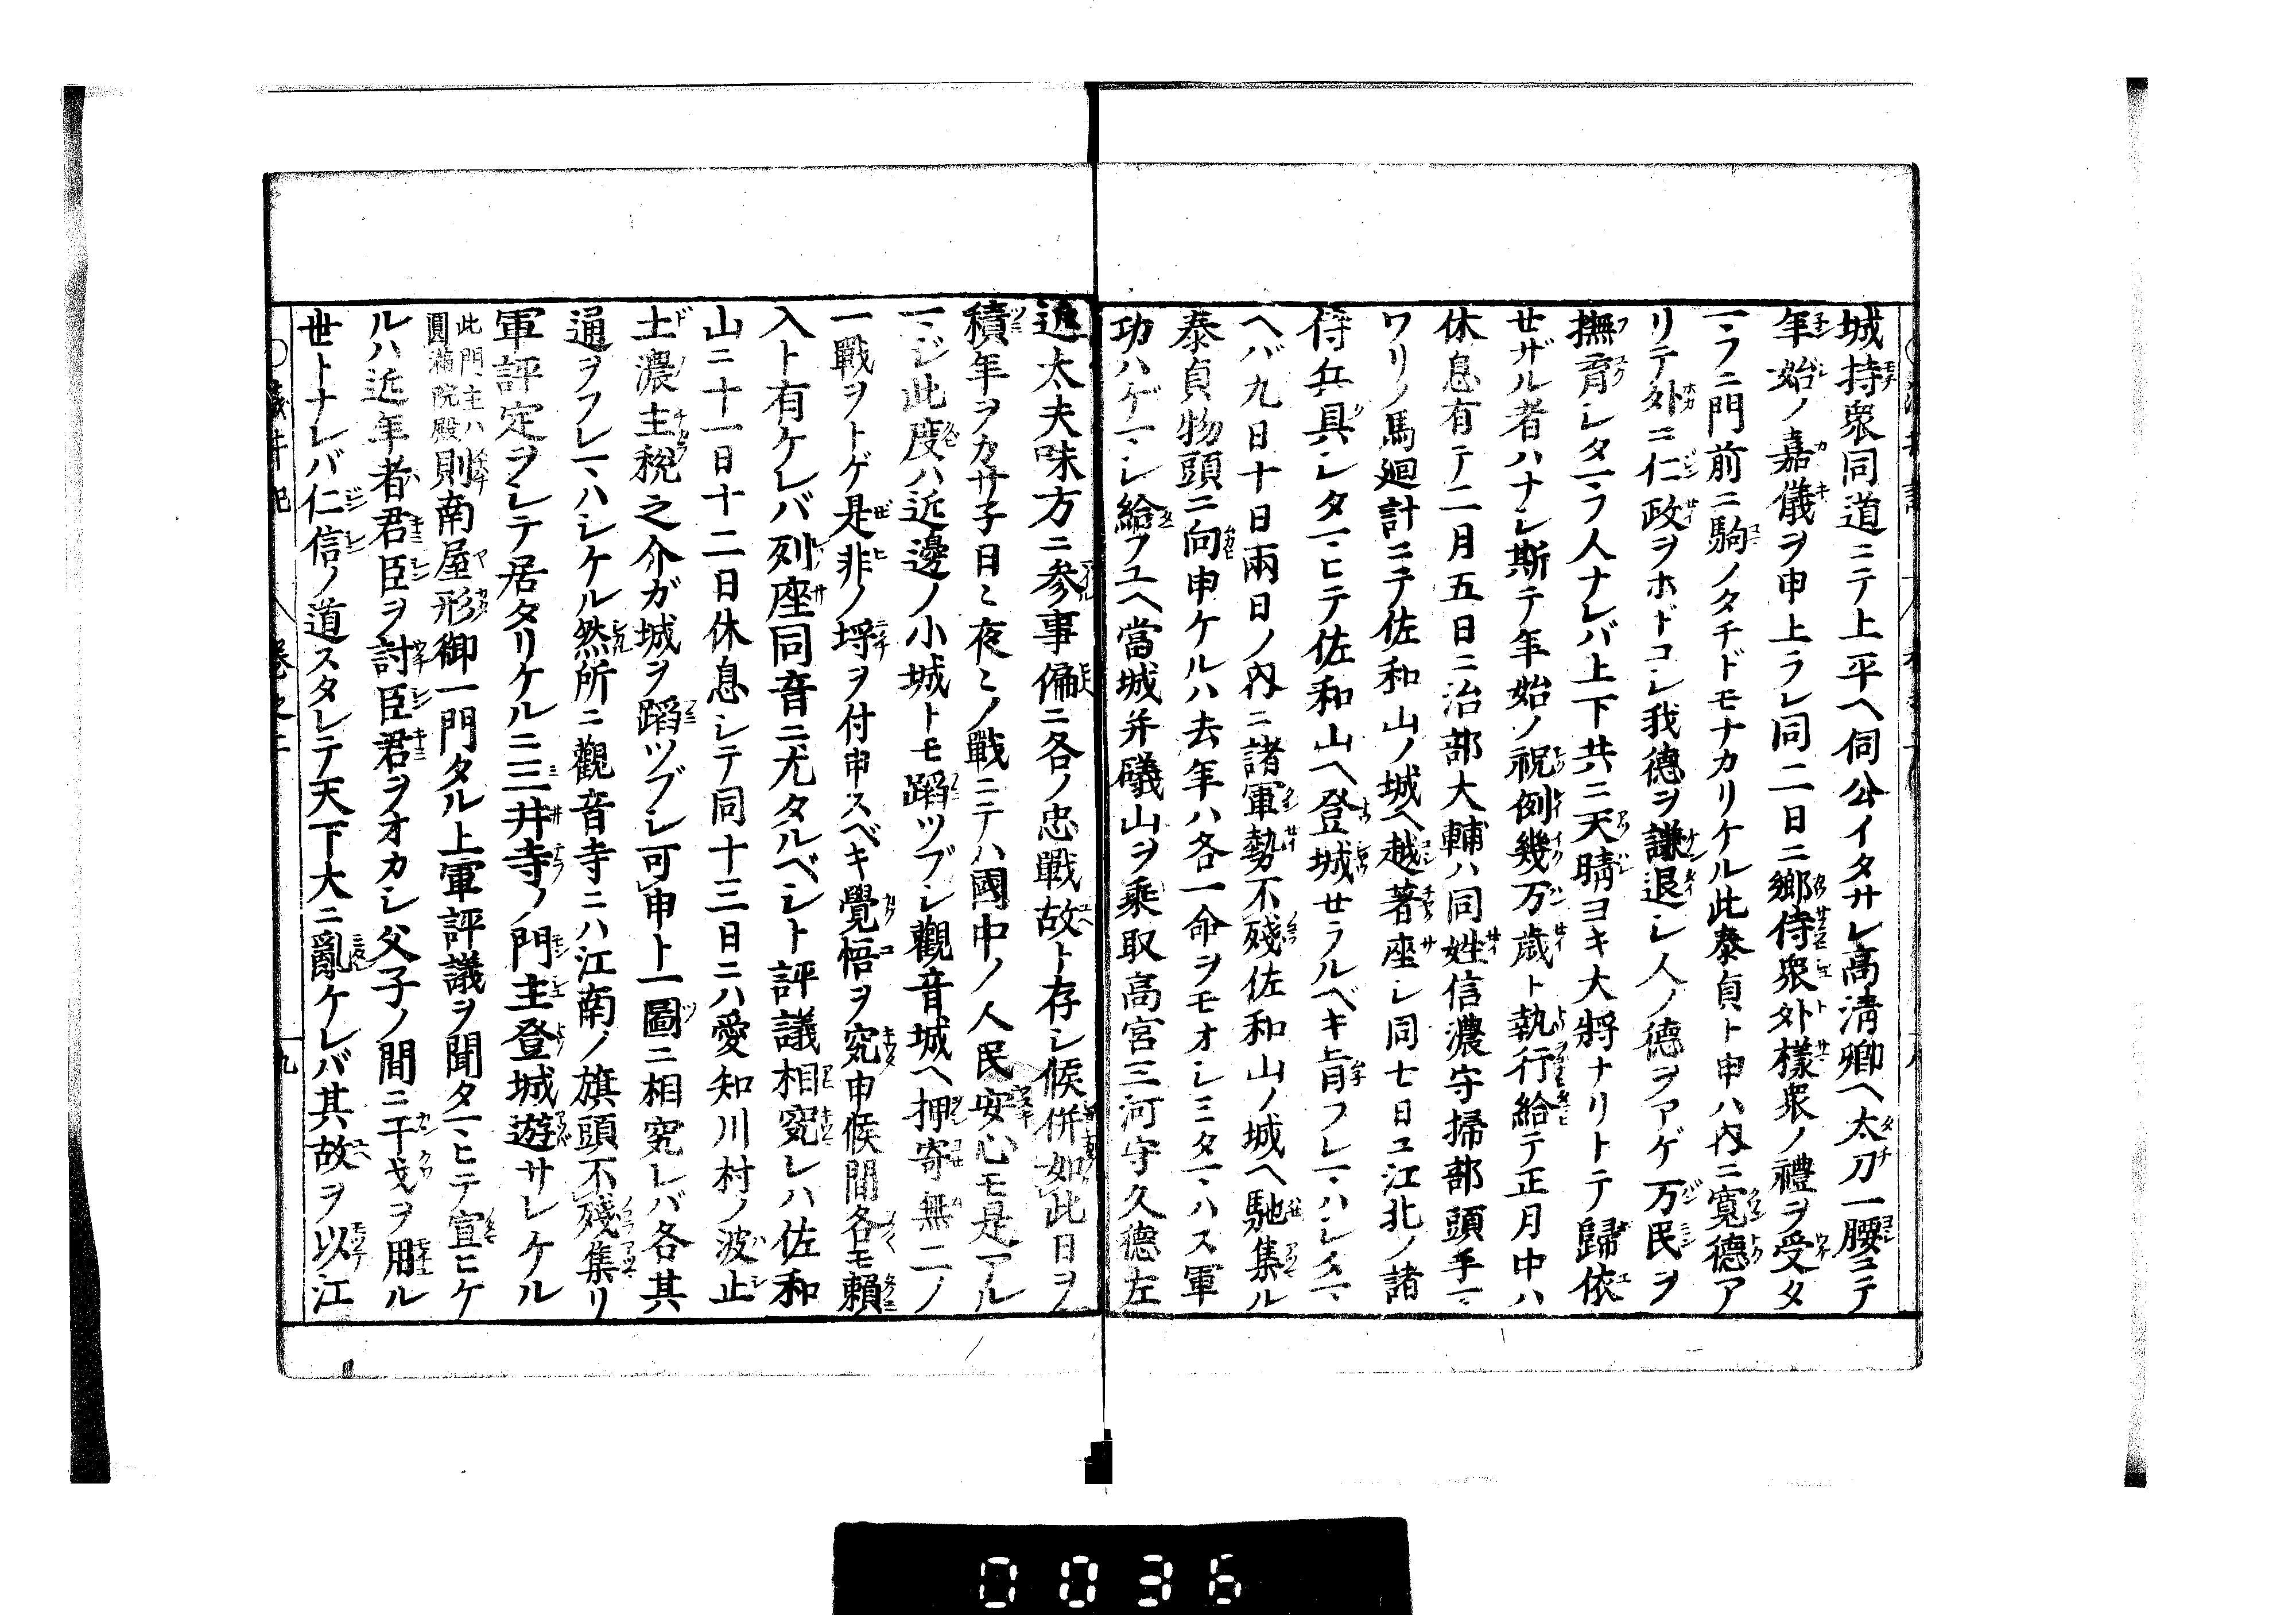 城持衆同道ニテ上平ヘ伺公イタサレ高清卿ヘ太刀一腰ニテ
年始ノ嘉儀ヲ申上ラレ同二日ニ郷侍衆外樣衆ノ禮ヲ受タ
マフニ門前ニ駒ノタチドモナカリケル此泰貞ト申ハ内ニ寛德ア
リテ外ニ仁政ヲホドコシ我德ヲ謙退シ人ノ德ヲアゲ万民ヲ
撫育シタマフ人ナレバ上下共ニ天晴ヨキ大將ナリトテ歸依
セザル者ハナシ斯テ年始ノ祝例幾万歳ト執行給テ正月中ハ
休息有テ二月五日ニ治部大輔ハ同姓信濃守掃部頭手マ
ワリノ馬廻計ニテ佐和山ノ城ヘ越著座シ同七日ニ江北ノ諸
侍兵具シタマヒテ佐和山ヘ登城セラルベキ旨フレマハシ玉マ
ヘバ九日十日兩日ノ内ニ諸軍勢不殘佐和山ノ城ヘ馳集ル
泰貞物頭ニ向申ケルハ去年ハ各一命ヲモオシミタマハス軍
功ハゲマシ給フユヘ當城并礒山ヲ乘取高宮三河守久德左
近太夫味方ニ参事偏ニ各ノ忠戰故ト存シ候併如此日ヲ
積年ヲカサ子日ミ夜ミノ戰ニテハ國中ノ人民安心モ是アル
マジ此度ハ近邊ノ小城トモ蹈ツブシ觀音城ヘ押寄無二ノ
一戰ヲトゲ是非ノ埒ヲ付申スベキ覺悟ヲ究申候間各モ賴
入ト有ケレバ列座同音ニ尤タルベシト評議相究レハ佐和
山ニ十一日十二日休息シテ同十三日ニハ愛知川村ノ波止
土濃主税之介ガ城ヲ蹈ツブシ可申ト一圖ニ相究レバ各其
通ヲフレマハシケル然所ニ觀音寺ニハ江南ノ旗頭不殘集リ
軍評定ヲシテ居タリケルニ三井寺ノ門主登城遊サレケル
此門主ハ圓滿院殿則南屋形御一門タル上軍評議ヲ聞タマヒテ宣ヒケ
ルハ近年者君臣ヲ討臣君ヲオカシ父子ノ間ニ干戈ヲ用ル
世トナレバ仁信ノ道スタレテ天下大ニ亂ケレバ其故ヲ以江
九
0036